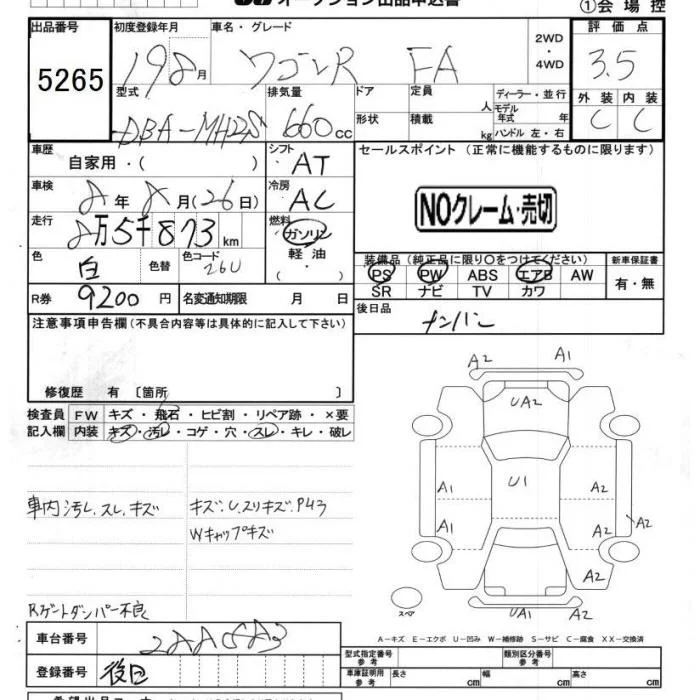 オークション出品申込書
①会場控
出品番号 初度登録年月 車名・グレード 2WD・4WD 評価点
5265 19 8月 ワゴンR FA 3.5
型式 排気量 ドア 定員 人 ディーラー・並行 外装 内装
DBA-MH22S 660cc 形状 積載 kg モデル年式 年 C C
ハンドル 左・右
車歴 自家用・( ) シフト AT セールスポイント (正常に機能するものに限ります)
車検 8年8月(26日) 冷房 AC NOクレーム・売切
走行 8万5千873km 燃料 ガソリン・軽油・( )
色 白 色替 色コード 26U 装備品(純正品に限り○をつけてください) 新車保証書
PS PW ABS エアB AW 有・無
SR ナビ TV カワ
R券 9200円 名変通知期限 月 日 後日品 ナンバー
注意事項申告欄(不具合内容等は具体的に記入して下さい)
修復歴 有 〔箇所 〕
検査員 FW キズ・飛石・ヒビ割・リペア跡・×要
記入欄 内装 キズ・汚レ・コゲ・穴・スレ・キレ・破レ
車内汚レ、スレ、キズ キズ、U、スリキズ、P43
Wキャップキズ
Rゲートダンパー不良
A2 A1
UA2
A1 U1 A2
A1 A2 A2
A2
スペア
UA2 A1
A-キズ E-エクボ U-凹み W-補修跡 S-サビ C-腐食 XX-交換済
車台番号
登録番号 後日
型式指定番号 参考 類別区分番号 参考
車庫証明用 参考 長さ cm 幅 cm 高さ cm